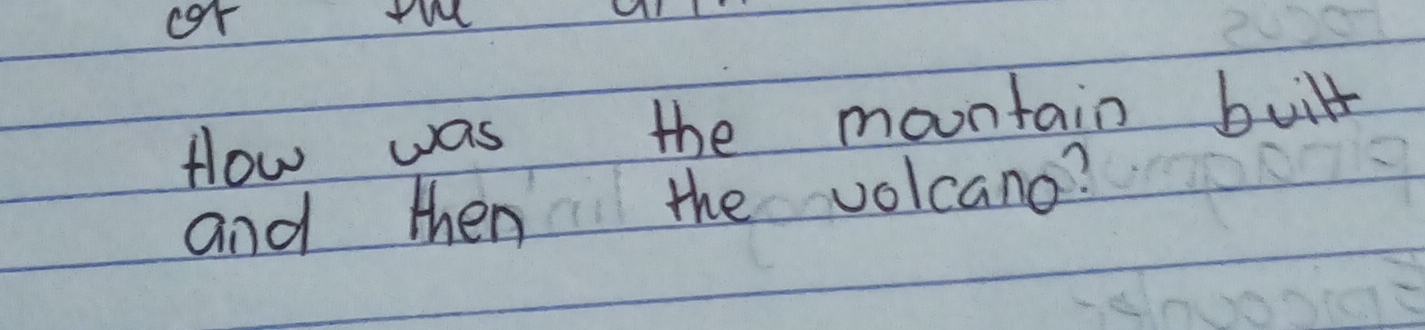 How was the mountain built
and then the volcano?